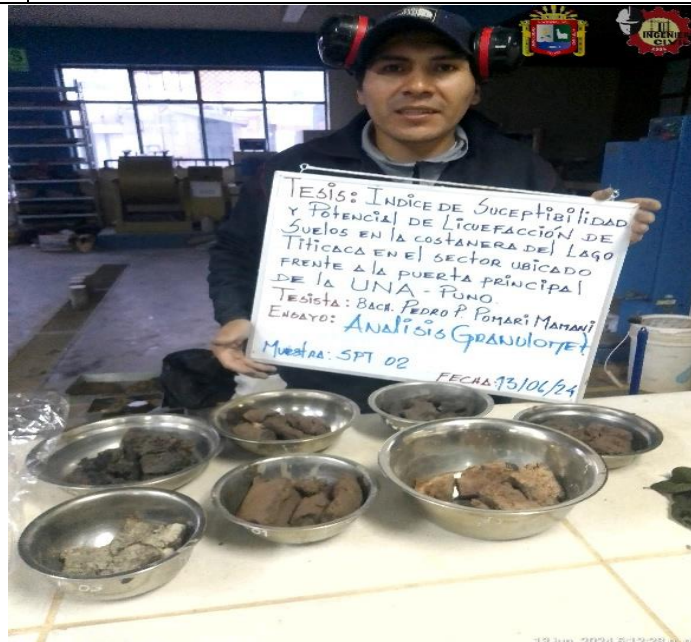 INGENIERIA
CIVIL
TESIS: INDICE DE SUCEPTIBILIDAD
Y POTENCIAL DE LICUEFACCIÓN DE
SUELOS EN LA COSTANERA DEL LAGO
TITICACA EN EL SECTOR UBICADO
FRENTE A LA PUERTA PRINCIPAL
DE LA UNA - PUNO.
TESISTA: BACH. PEDRO P. POMARI MAMANI
ENSAYO: ANALISIS GRANULOMET
MUESTRA: SPT 02
FECHA: 13/06/24
03